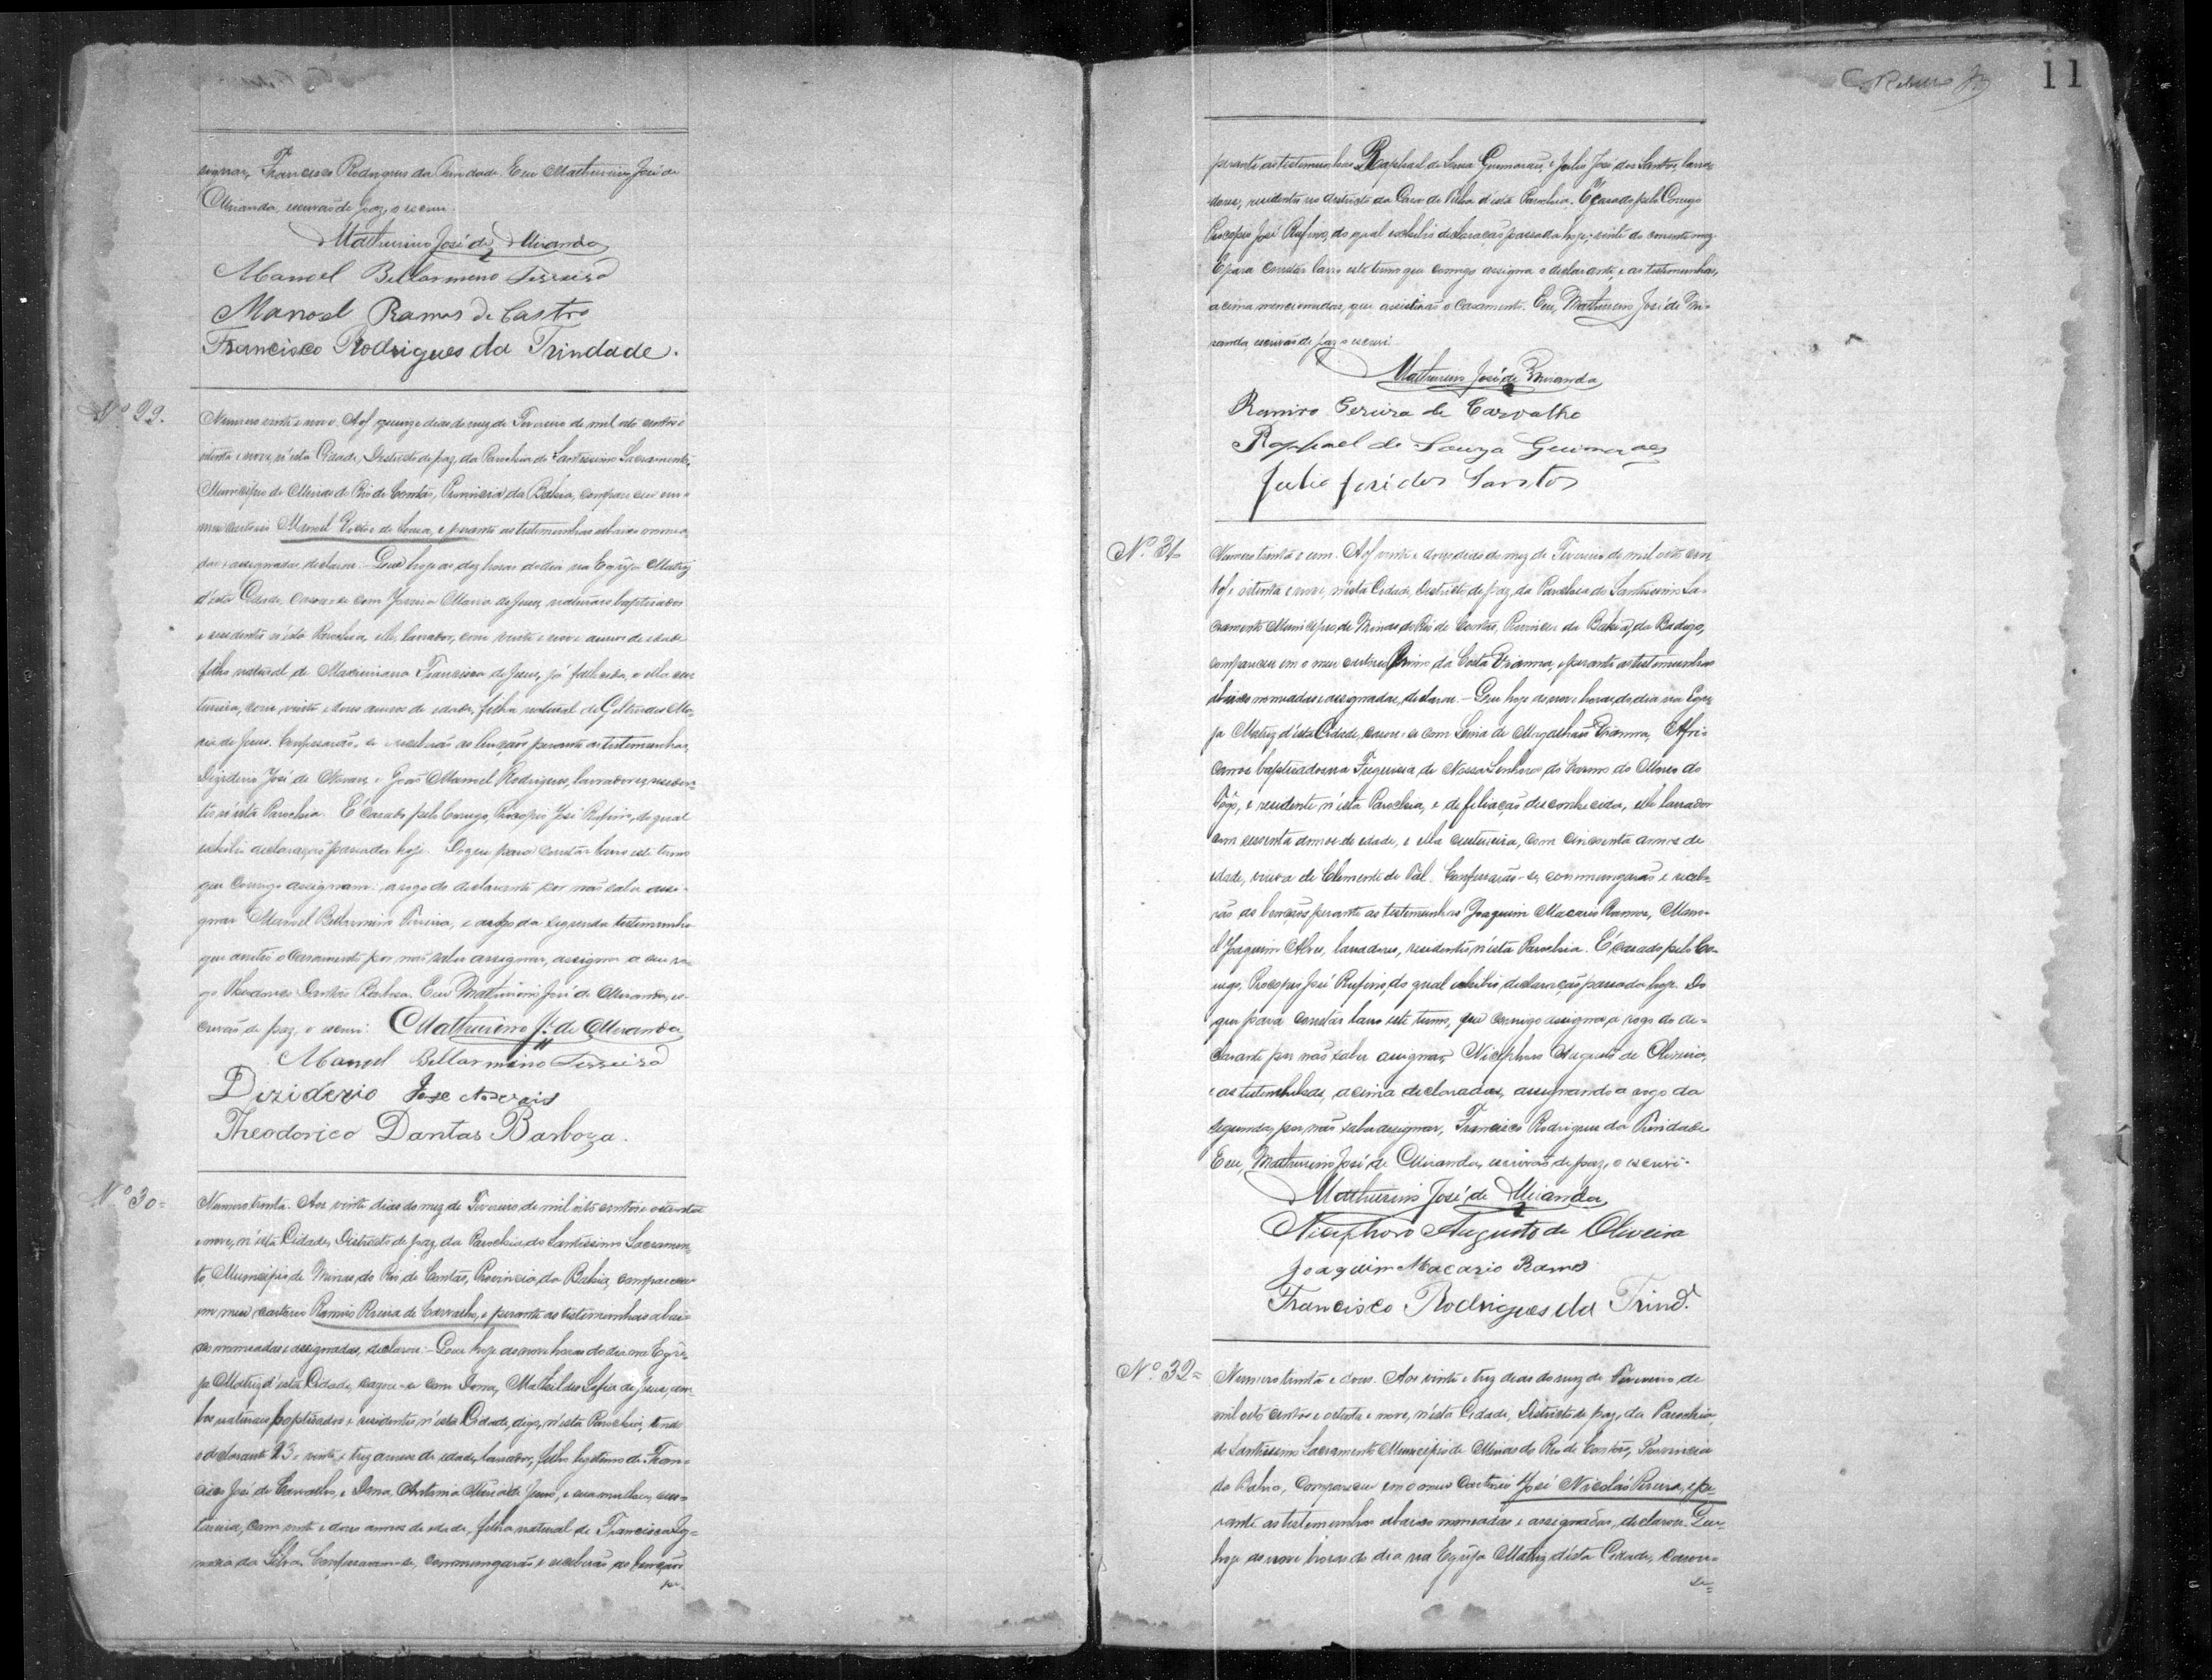 signar, Francisco Rodrigues da Trindade. Eu Mathurino José de
Miranda, escrivão de paz, o escrevi.
Mathurino José de Miranda
Manoel Bellarmino Ferreira
Manoel Ramos de Castro
Francisco Rodrigues da Trindade.
Nº 29.
Numero vinte e nove. Aos quinze dias do mez de Fevereiro de mil oito centos e
oitenta e nove, n'esta Cidade, Districto de paz, da Parochia do Santissimo Sacramento,
Municipio de Minas do Rio de Contas, Provincia da Bahia, compareceu em o
meu cartorio Manoel Victor de Souza, e perante as testemunhas abaixo nomea-
das e assignadas, declarou: Que hoje as dez horas do dia na Egreja Matriz
d'esta Cidade, casou-se com Maria de Jesus, naturaes baptisados
e residentes n'esta Parochia, elle, lavrador, com vinte e nove annos de edade
filho natural de Maximiana Francisca de Jesus, já fallecida, e ella cos-
tureira, com vinte e dous annos de edade, filha natural de Geltrudes Ma-
ria de Jesus. Confessarão-se e receberão as bençãos perante as testemunhas,
Diziderio José de Novaes, e João Manoel Rodrigues, lavradores, residen-
tes n'esta Parochia. E' casado pelo Conego, Procopio José Rufino, do qual
exhibio declaração passada hoje. Do que para constar lavro este termo
que comigo assignam: a rogo do declarante por não saber assi-
gnar Manoel Bellarmino Ferreira, e a rogo da segunda testemunha
que assistio o casamento por não saber assignar, assigna a seu ro-
go Theodorico Dantas Barboza. Eu Mathurino José de Miranda, es-
crivão de paz, o escrevi. Mathurino J. de Miranda
Manoel Bellarmino Ferreira
Diziderio Jose Novais
Theodorico Dantas Barboza.
Nº 30=
Numero trinta. Aos vinte dias do mez de Fevereiro de mil oito centos e oitenta
e nove, n'esta Cidade, Districto de paz, da Parochia do Santissimo Sacramen-
to, Municipio de Minas do Rio de Contas, Provincia da Bahia, compareceu
em meu cartorio Ramiro Pereira de Carvalho, e perante as testemunhas abai-
xo nomeadas e assignadas, declarou: - Que hoje as nove horas do dia na Egre-
ja Matriz d'esta Cidade, casou-se com Dona, Mathildes Sofia de Jesus, am-
bos naturaes baptisados e residentes n'esta Cidade, digo, n'esta Parochia, tendo
o declarante 23, vinte e trez annos de edade, lavrador, filho legitimo de Fran-
cisco José de Carvalho, e Dona Antonia de Jesus, e sua mulher, cos-
tureira, com vinte e dous annos de edade, filha natural de Francisca
da Silva. Confessaram-se, commungarão e receberão as bençãos
pe-
11
perante as testemunhas Raphael de Souza Guimarães, e Julio José dos Santos, lavra-
dores, residentes no districto da Casa de Telha d'esta Parochia. E' casado pelo Conego
Procopio José Rufino, do qual exhibio declaração passada hoje, vinte do corrente mez.
E para constar lavro este termo que comigo assigna o declarante, e as testemunhas,
acima mencionadas, que assistirão o casamento. Eu, Mathurino José de Mi-
randa, escrivão de paz o escrevi.
Mathurino José de Miranda
Ramiro Pereira de Carvalho
Raphael de Souza Guimarães
Julio José dos Santos
Nº 31
Numero trinta e um. Aos vinte e dous dias do mez de Fevereiro de mil oito cen-
tos e oitenta e nove, n'esta Cidade, Districto de paz, da Parochia do Santissimo Sa-
cramento Municipio, de Minas do Rio de Contas, Provincia da Bahia, da
compareceu em o meu cartorio da Costa Vianna, e perante as testemunhas
abaixo nomeadas e assignadas, declarou. - Que hoje as nove horas do dia na Egre-
ja Matriz d'esta Cidade, casou-se com de Magalhães Vianna, Afri-
canos baptisados na Freguezia de Nossa Senhora do Carmo do Morro do
Fôgo, e residentes n'esta Parochia, e de filiação desconhecida, elle lavrador
com sessenta annos de edade, e ella costureira, com cincoenta annos de
edade, viuva de Clemente de Tal. Confessarão-se, commungarão e recebe-
rão as bençãos perante as testemunhas Joaquim Macario Ramos, Mano-
el Joaquim Alves, lavradores, residentes n'esta Parochia. E' casado pelo Co-
nego, Procopio José Rufino, do qual exhibio declaração passada hoje. Do
que para constar lavro este termo, que comigo assigna a rogo do de-
clarante por não saber assignar, Nicephoro Augusto de Oliveira,
e as testemunhas, acima declaradas, assignando a rogo da
segunda, por não saber assignar, Francisco Rodrigues da Trindade
Eu, Mathurino José de Miranda, escrivão de paz, o escrevi.
Mathurino José de Miranda,
Nicephoro Augusto de Oliveira
Joaquim Macario Ramos
Francisco Rodrigues da Trind.e
Nº 32=
Numero trinta e dous. Aos vinte e trez dias do mez de Fevereiro de
mil oito centos e oitenta e nove, n'esta Cidade, Districto de paz, da Parochia
do Santissimo Sacramento Municipio de Minas do Rio de Contas, Provincia
da Bahia, compareceu em o meu Cartorio José Nicoláo Pereira, e pe-
rante as testemunhas abaixo nomeadas e assignadas, declarou. Que
hoje as nove horas do dia na Egreja Matriz d'esta Cidade, casou-
se=